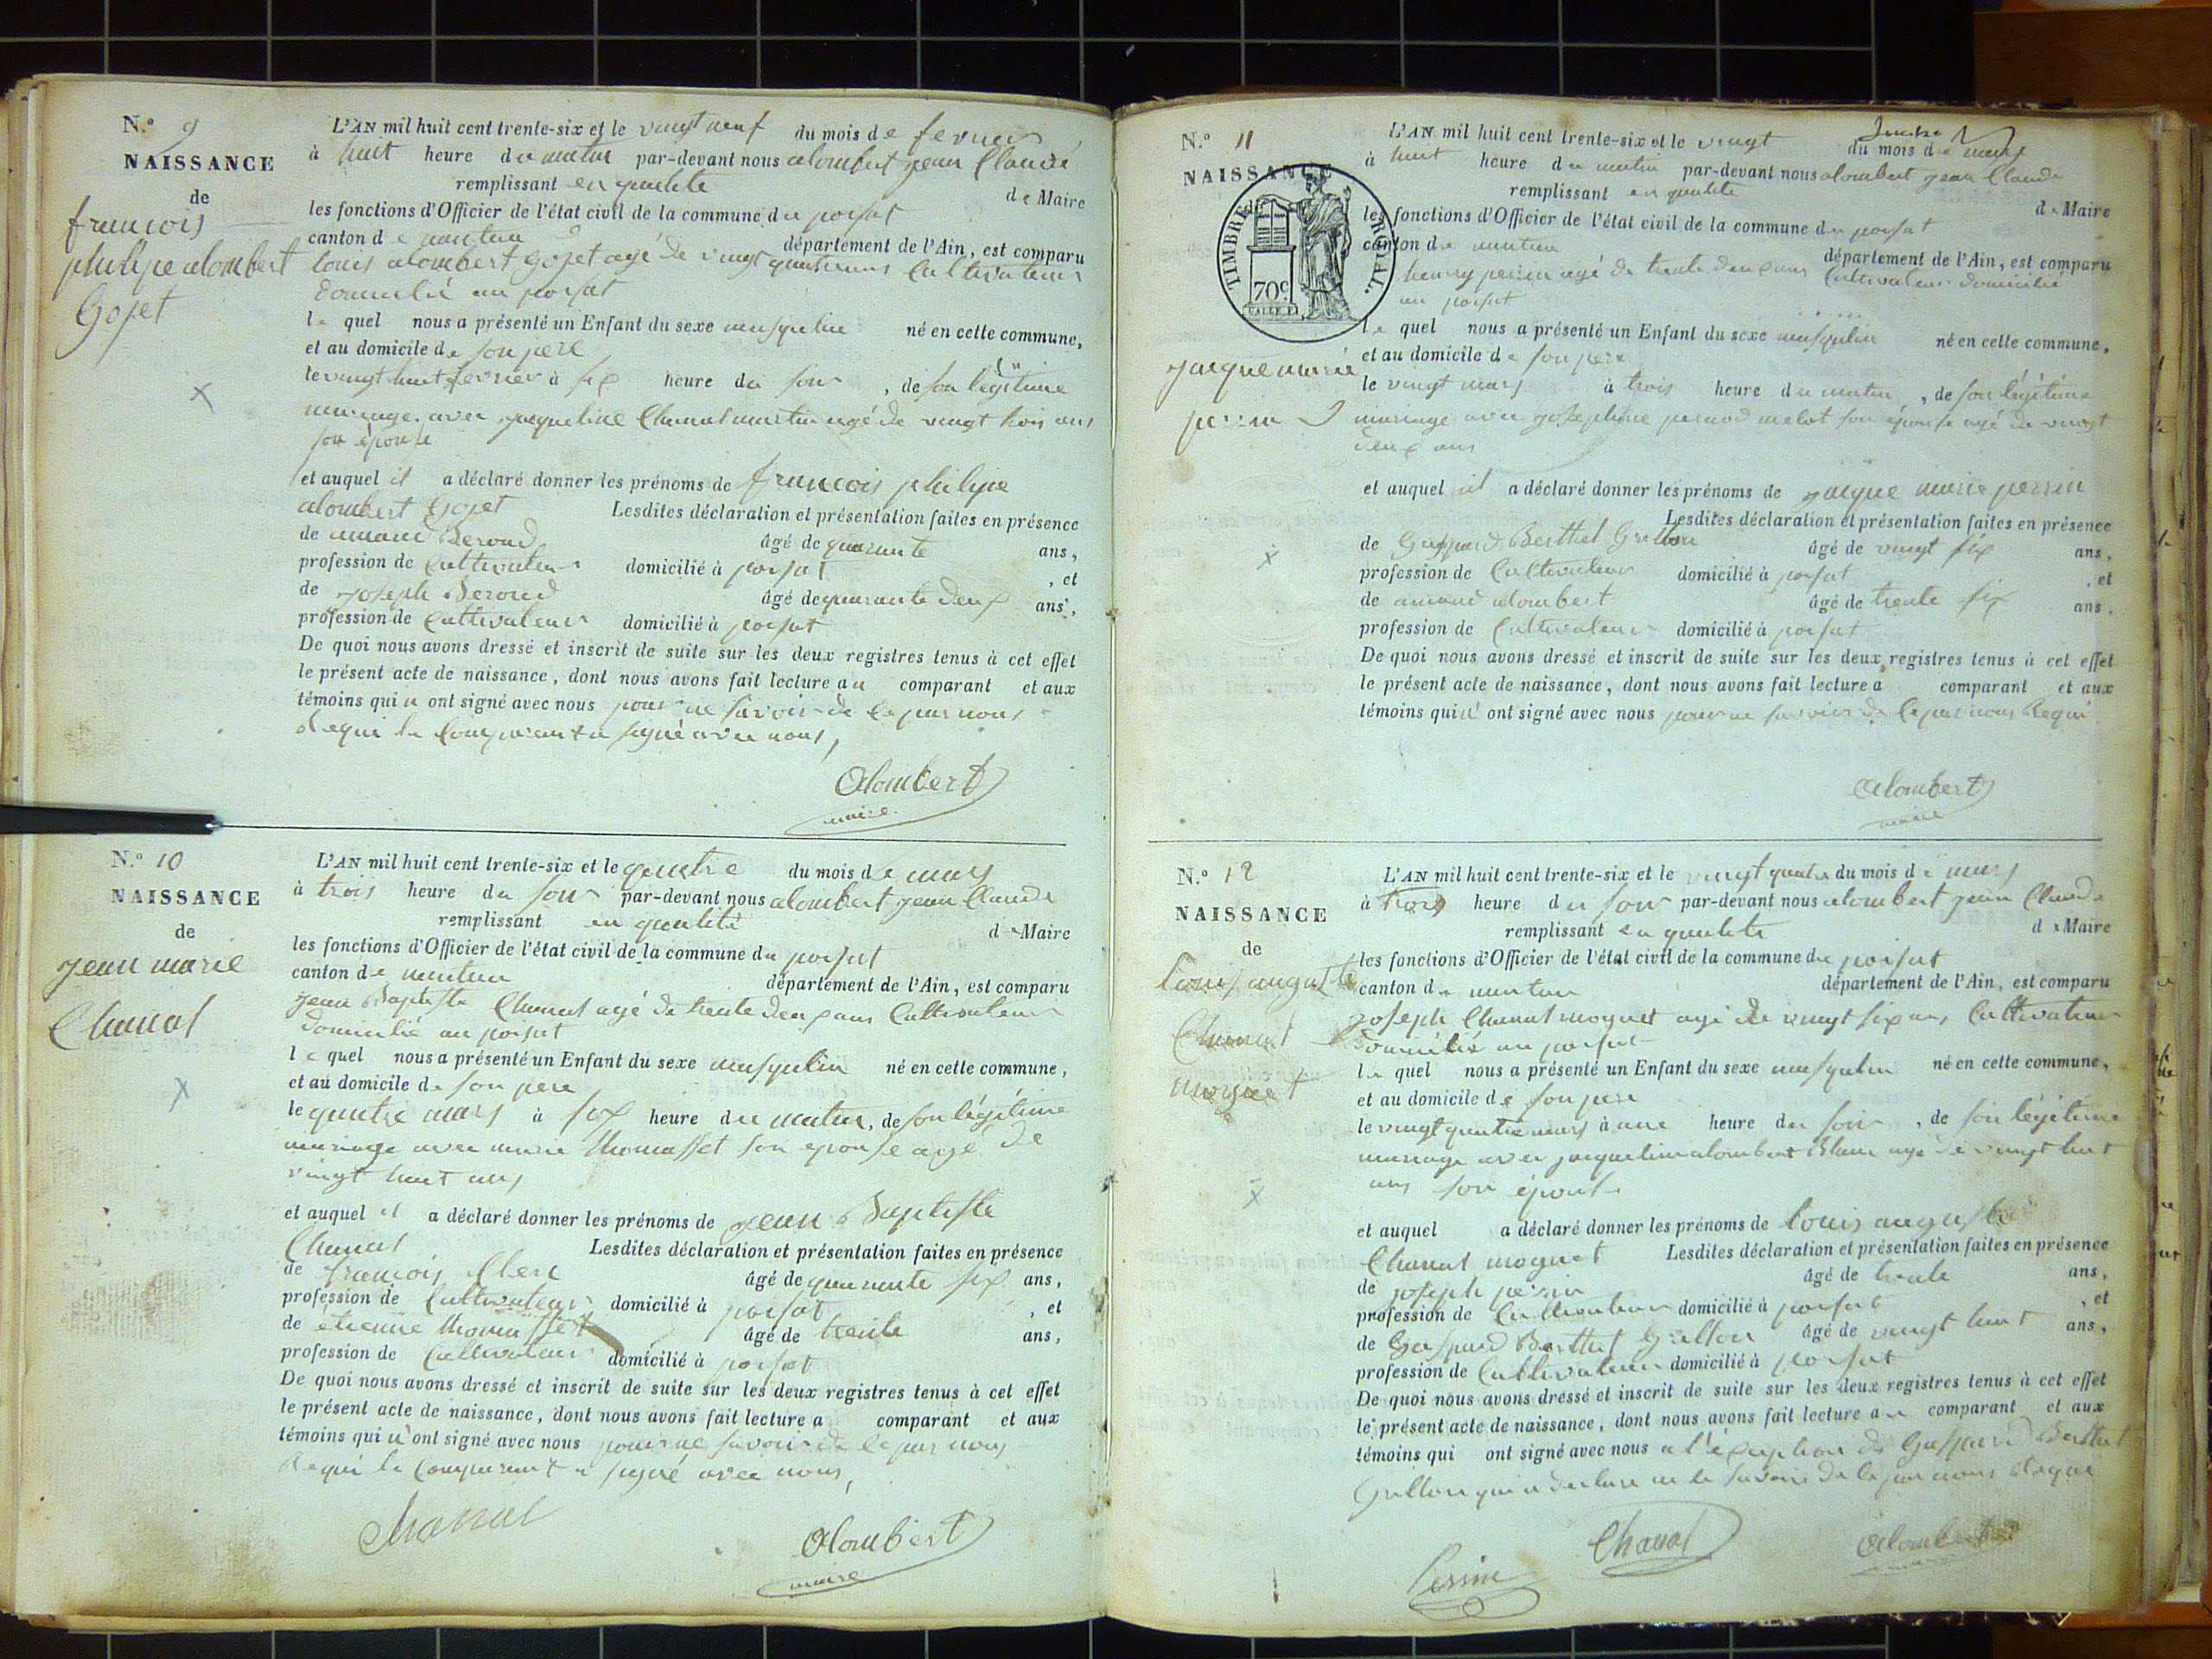 N.° 9
NAISSANCE
de
francois
philipe alombert
Gojet
L'AN mil huit cent trente-six et le vingt neuf du mois de fevrier
à huit heure du matin par-devant nous alombert jean Claude
remplissant en qualité de Maire
les fonctions d'Officier de l'état civil de la commune du poisat
canton de nantua département de l'Ain, est comparu
louis alombert Gojet agé de vingt quatre ans Cultivateur
domicilié au poisat
le quel nous a présenté un Enfant du sexe masqulin né en cette commune,
et au domicile de son pere
le vingt huit fevrier à six heure du soir, de son légitime
mariage avec jaqueline Chanal martin agé de vingt trois ans
son épouse
et auquel il a déclaré donner les prénoms de francois philipe
alombert Gojet Lesdites déclaration et présentation faites en présence
de amand Beroud âgé de quarante ans,
profession de Cultivateur domicilié à poisat, et
de joseph Beroud âgé de quarante deux ans,
profession de Cultivateur domicilié à poisat
De quoi nous avons dressé et inscrit de suite sur les deux registres tenus à cet effet
le présent acte de naissance, dont nous avons fait lecture au comparant et aux
témoins qui n ont signé avec nous pour ne savoir de ce par nous
Requi le Comparant a signé avec nous,
Alombert
maire
N.° 10
NAISSANCE
de
jean marie
Chanal
L'AN mil huit cent trente-six et le quatre du mois de mars
à trois heure du soir par-devant nous alombert jean Claude
remplissant en qualité de Maire
les fonctions d'Officier de l'état civil de la commune du poisat
canton de nantua département de l'Ain, est comparu
jean Baptiste Chanal agé de trente deux ans Cultivateur
domicilié au poisat
le quel nous a présenté un Enfant du sexe masqulin né en cette commune,
et au domicile de son pere
le quatre mars à six heure du matin, de son légitime
mariage avec marie thomasset son epouse agé de
vingt huit ans
et auquel il a déclaré donner les prénoms de jean Baptiste
Chanal Lesdites déclaration et présentation faites en présence
de francois Clerc âgé de quarante six ans,
profession de Cultivateur domicilié à poisat, et
de étienne thomasset âgé de trente ans,
profession de Cultivateur domicilié à poisat
De quoi nous avons dressé et inscrit de suite sur les deux registres tenus à cet effet
le présent acte de naissance, dont nous avons fait lecture a comparant et aux
témoins qui n'ont signé avec nous pour ne savoir de ce par nous
Requi le Comparant a signé avec nous,
Chanal
Alombert
maire
N.° 11
NAISSANCE
TIMBRE ROYAL.
70c
jaque marie
perrin
L'AN mil huit cent trente-six et le vingt du mois de mars
à huit heure du matin par-devant nous alombert jean Claude
remplissant en qualité de Maire
les fonctions d'Officier de l'état civil de la commune du poisat
canton de nantua département de l'Ain, est comparu
henry perrin agé de trente deux ans Cultivateur domicilié
au poisat
le quel nous a présenté un Enfant du sexe masqulin né en cette commune,
et au domicile de son pere
le vingt mars à trois heure du matin, de son légitime
mariage avec josephine pernod melot son épouse agé de vingt
deux ans
et auquel il a déclaré donner les prénoms de jaque marie perrin
Lesdites déclaration et présentation faites en présence
de Gaspard Berthet Grillon âgé de vingt six ans,
profession de Cultivateur domicilié à poisat, et
de amand alombert âgé de trente six ans,
profession de Cultivateur domicilié à poisat
De quoi nous avons dressé et inscrit de suite sur les deux registres tenus à cet effet
le présent acte de naissance, dont nous avons fait lecture a comparant et aux
témoins qui n' ont signé avec nous pour ne savoir de ce par nous Requi
Alombert
maire
N.° 12
NAISSANCE
de
louis auguste
Chanal
moguet
L'AN mil huit cent trente-six et le vingt quatre du mois de mars
à trois heure du soir par-devant nous alombert jean Claude
remplissant en qualité de Maire
les fonctions d'Officier de l'état civil de la commune du poisat
canton de nantua département de l'Ain, est comparu
joseph Chanal moguet agé de vingt six ans Cultivateur
domicilié au poisat
le quel nous a présenté un Enfant du sexe masqulin né en cette commune,
et au domicile de son pere
le vingt quatre mars à une heure du soir, de son légitime
mariage avec jaqueline alombert Blanc agé de vingt huit
ans son épouse
et auquel a déclaré donner les prénoms de louis auguste
Chanal moguet Lesdites déclaration et présentation faites en présence
de joseph perrin âgé de trente ans,
profession de Cultivateur domicilié à poisat, et
de Gaspard Berthet Grillon âgé de vingt huit ans,
profession de Cultivateur domicilié à poisat
De quoi nous avons dressé et inscrit de suite sur les deux registres tenus à cet effet
le présent acte de naissance, dont nous avons fait lecture au comparant et aux
témoins qui ont signé avec nous a l'éxception de Gaspard Berthet
Grillon qui a declare ne le savoir de ce par nous Requi
Perrin
Chanal
Alombert